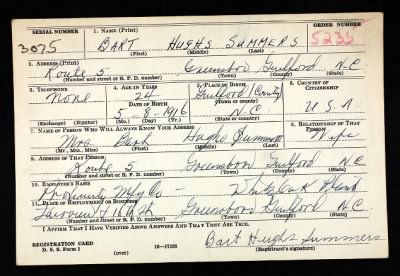 SERIAL NUMBER 1. NAME (Print) ORDER NUMBER
3075 BART HUGHS SUMMERS 5235
(First) (Middle) (Last)
2. ADDRESS (Print)
Route 5 Greensboro Guilford N.C.
(Number and street or R. F. D. number) (Town) (County) (State)
3. TELEPHONE 4. AGE IN YEARS 5. PLACE OF BIRTH 6. COUNTRY OF CITIZENSHIP
None 24 Guilford County
DATE OF BIRTH (Town or county)
5 9 1916 N.C. U.S.A.
(Exchange) (Number) (Mo.) (Day) (Yr.) (State or country)
7. NAME OF PERSON WHO WILL ALWAYS KNOW YOUR ADDRESS 8. RELATIONSHIP OF THAT PERSON
Mrs Bart Hughs Summers Wife
(Mr., Mrs., Miss) (First) (Middle) (Last)
9. ADDRESS OF THAT PERSON
Route 5 Greensboro Guilford N.C.
(Number and street or R. F. D. number) (Town) (County) (State)
10. EMPLOYER'S NAME
Proximity Mfg Co - White Oak Plant
11. PLACE OF EMPLOYMENT OR BUSINESS
Fairview & 16th St Greensboro Guilford N.C.
(Number and street or R. F. D. number) (Town) (County) (State)
I AFFIRM THAT I HAVE VERIFIED ABOVE ANSWERS AND THAT THEY ARE TRUE.
REGISTRATION CARD Bart Hughs Summers
D. S. S. Form 1 (over) 16—17105 (Registrant's signature)